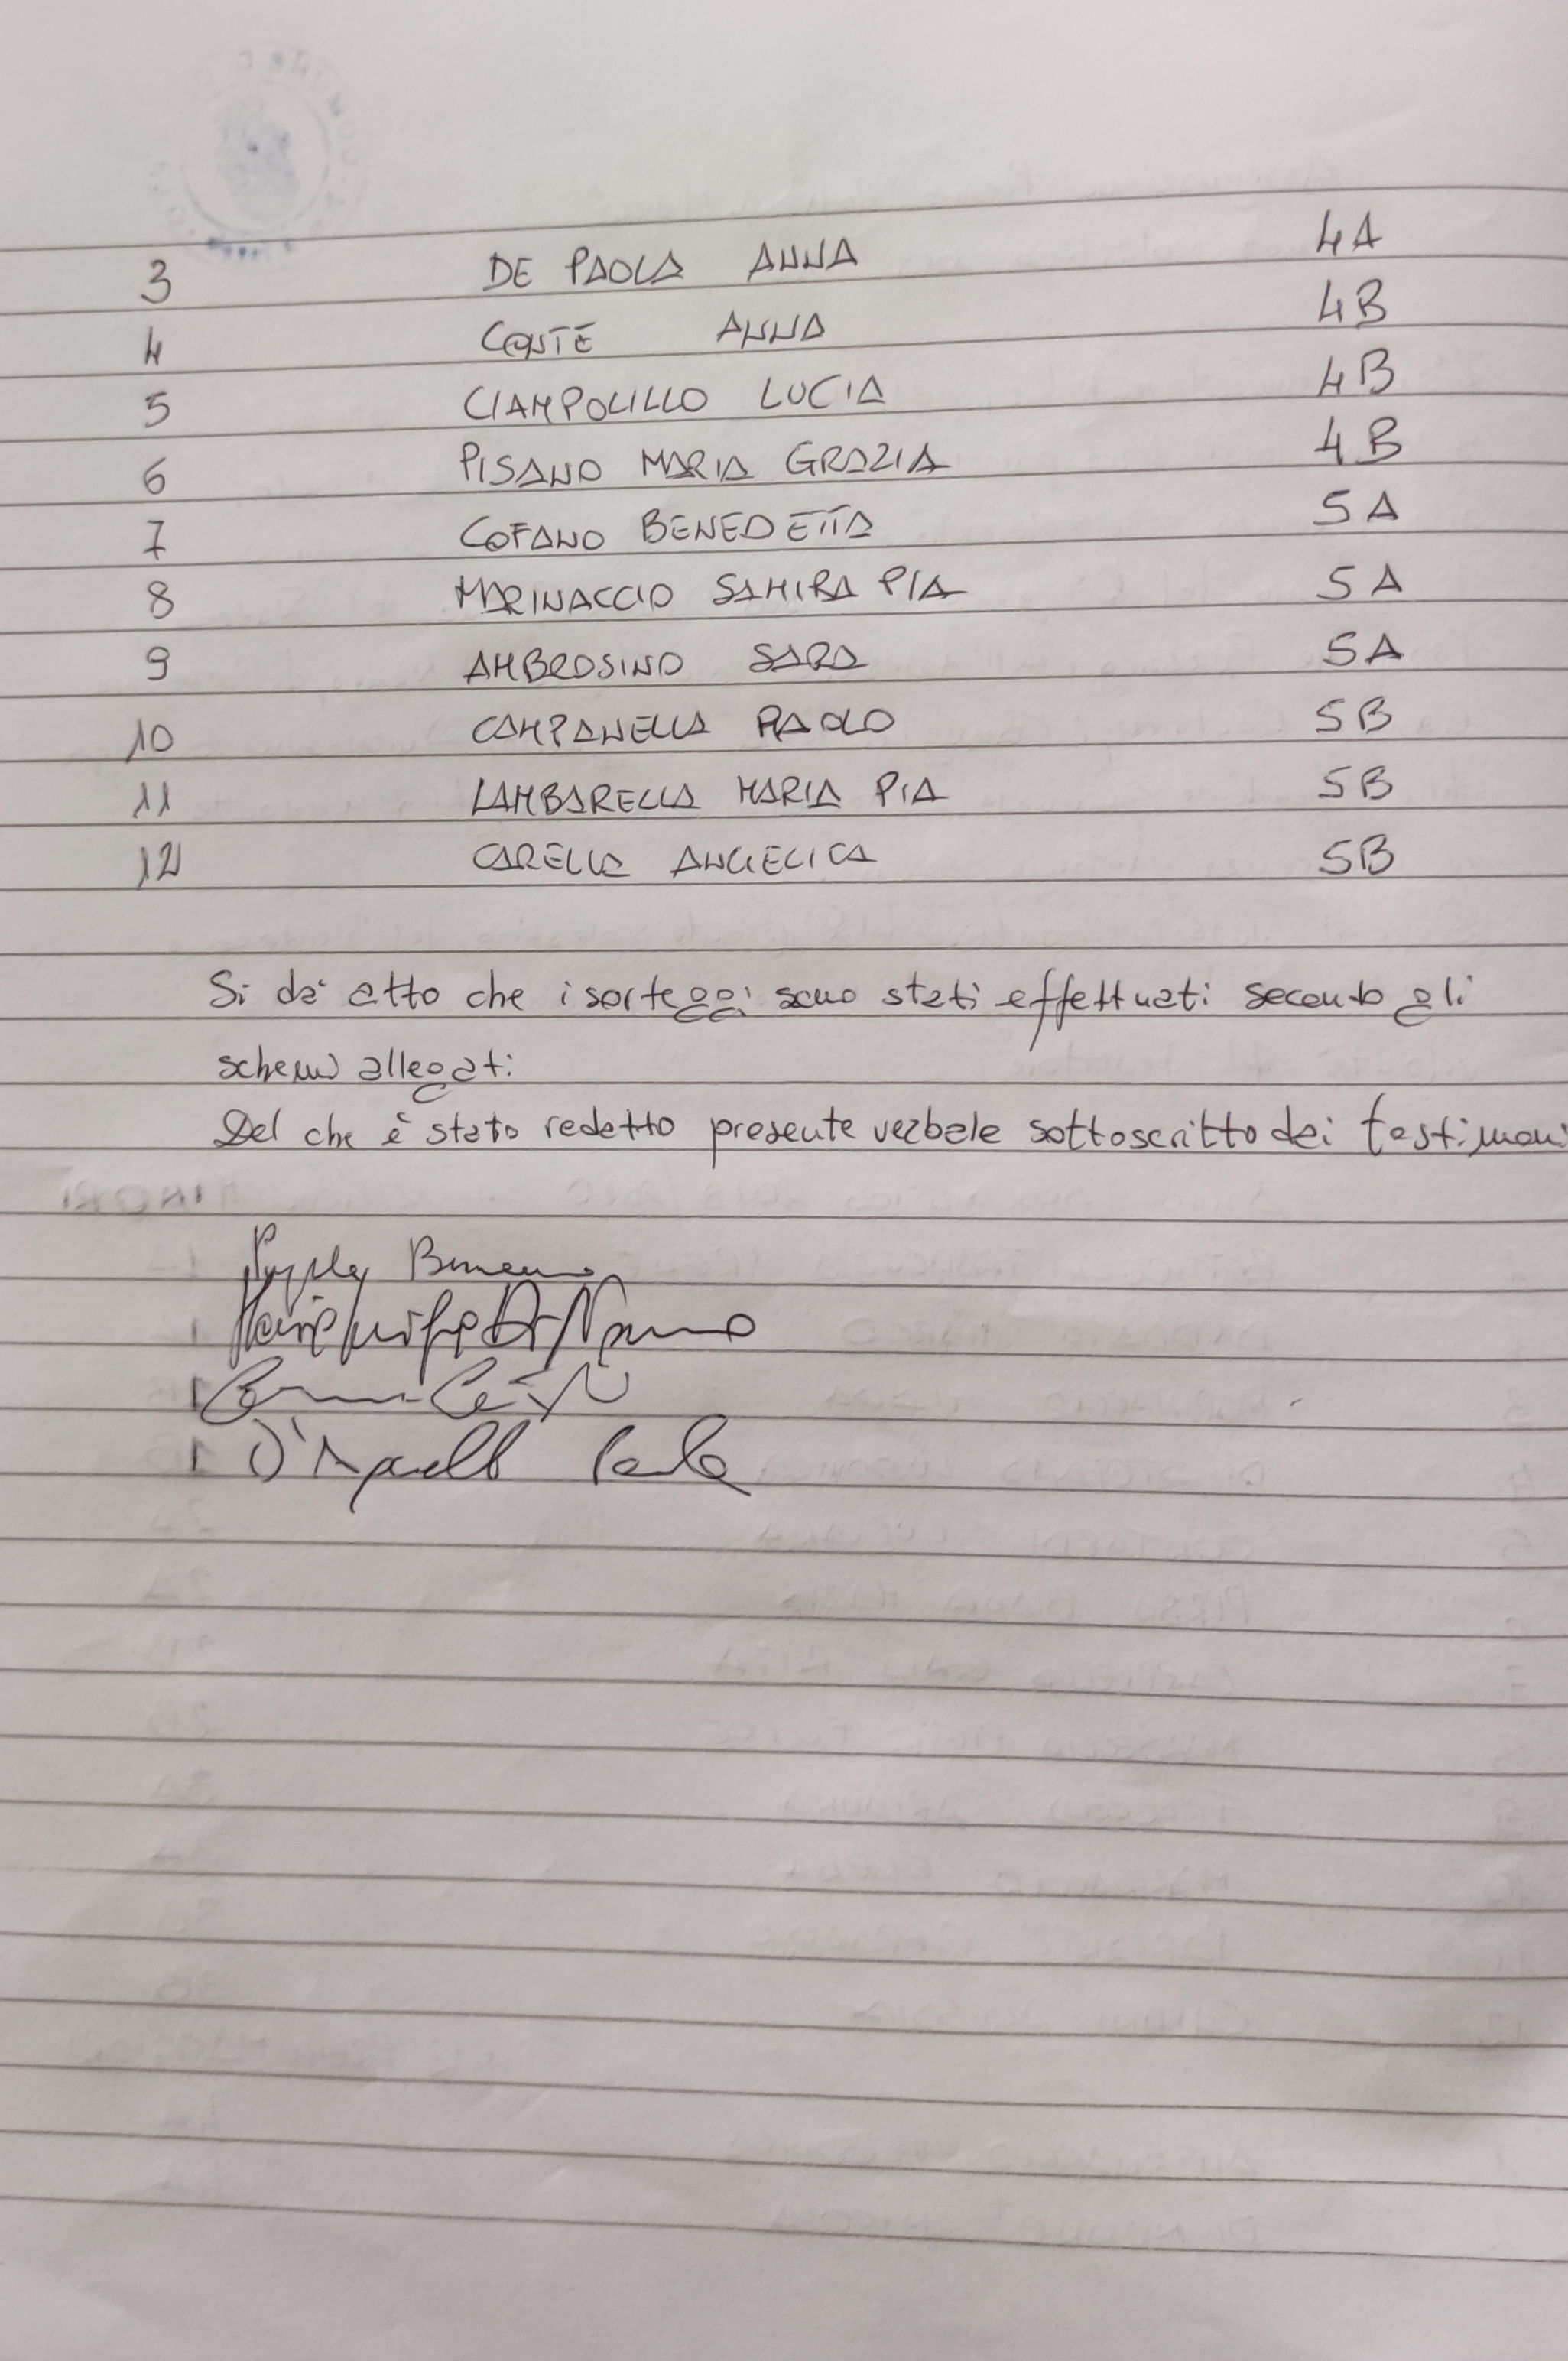 3 DE PAOLA ANNA 4A
4 CONTE ANNA 4B
5 CIAMPOLILLO LUCIA 4B
6 PISANO MARIA GRAZIA 4B
7 COFANO BENEDETTA 5A
8 MARINACCIO SAMIRA PIA 5A
9 AMBROSINO SARA 5A
10 CAMPANELLA PAOLO 5B
11 LAMBARELLA MARIA PIA 5B
12 CARELLA ANGELICA 5B
Si da' atto che i sorteggi sono stati effettuati secondo gli
schemi allegati
Del che è stato redatto presente verbale sottoscritto dai testimoni
D'